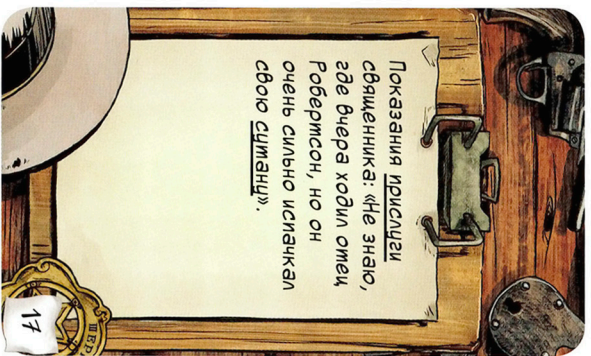 Показания прислуги
священника: «Не знаю,
где вчера ходил отец
Робертсон, но он
очень сильно испачкал
свою сутану».
ШЕР
17